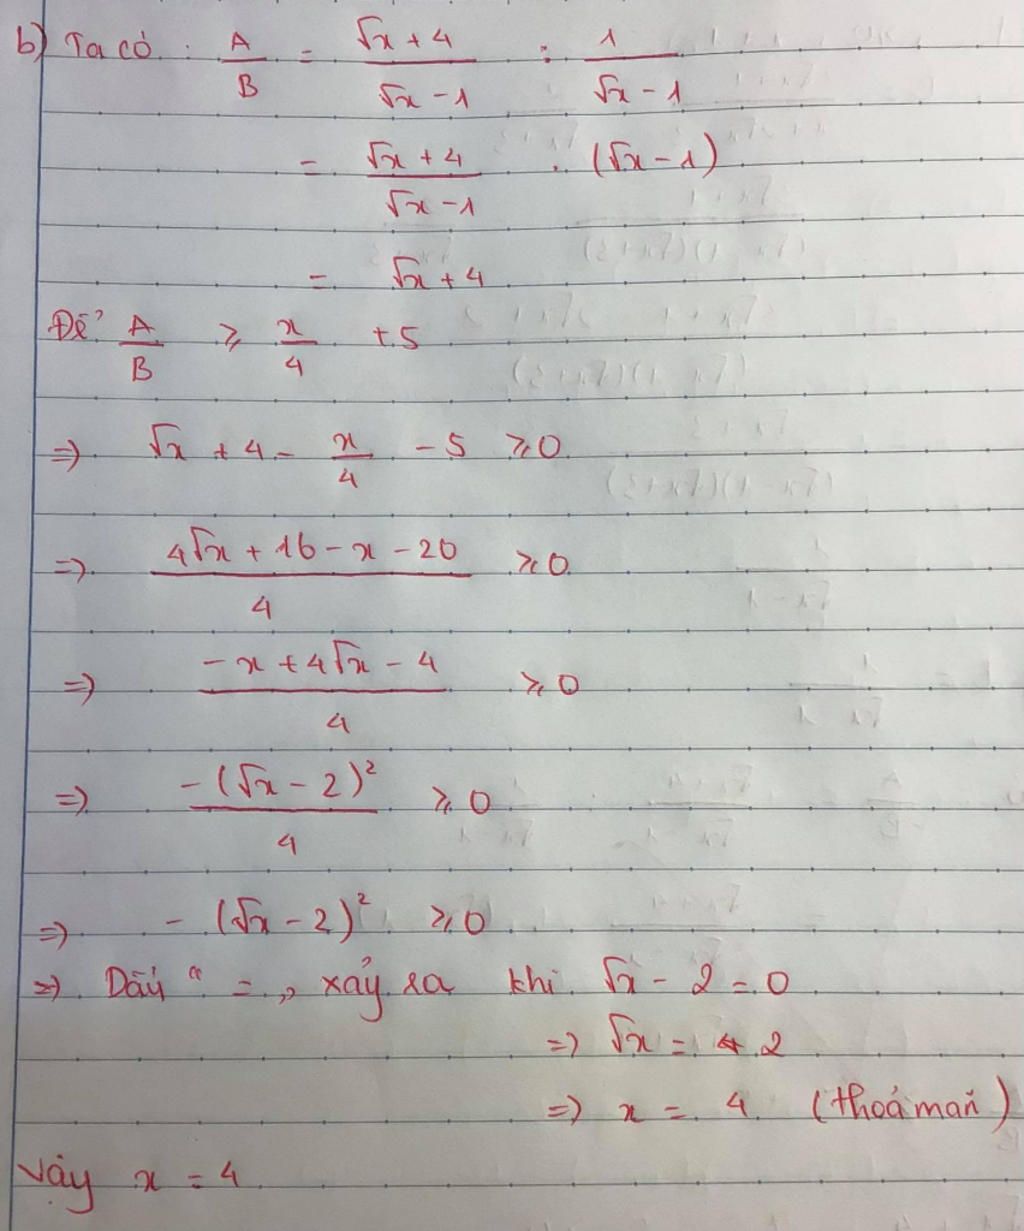 b) Ta có : A/B = (√x + 4)/(√x - 1) : 1/(√x - 1)
= (√x + 4)/(√x - 1) . (√x - 1)
= √x + 4
Để A/B ⩾ x/4 + 5
=> √x + 4 - x/4 - 5 ⩾ 0
=> (4√x + 16 - x - 20)/4 ⩾ 0
=> (-x + 4√x - 4)/4 ⩾ 0
=> -(√x - 2)²/4 ⩾ 0
=> - (√x - 2)² ⩾ 0
=> Dấu " = " xảy ra khi √x - 2 = 0
=> √x = 2
=> x = 4 (thoả mãn)
Vậy x = 4